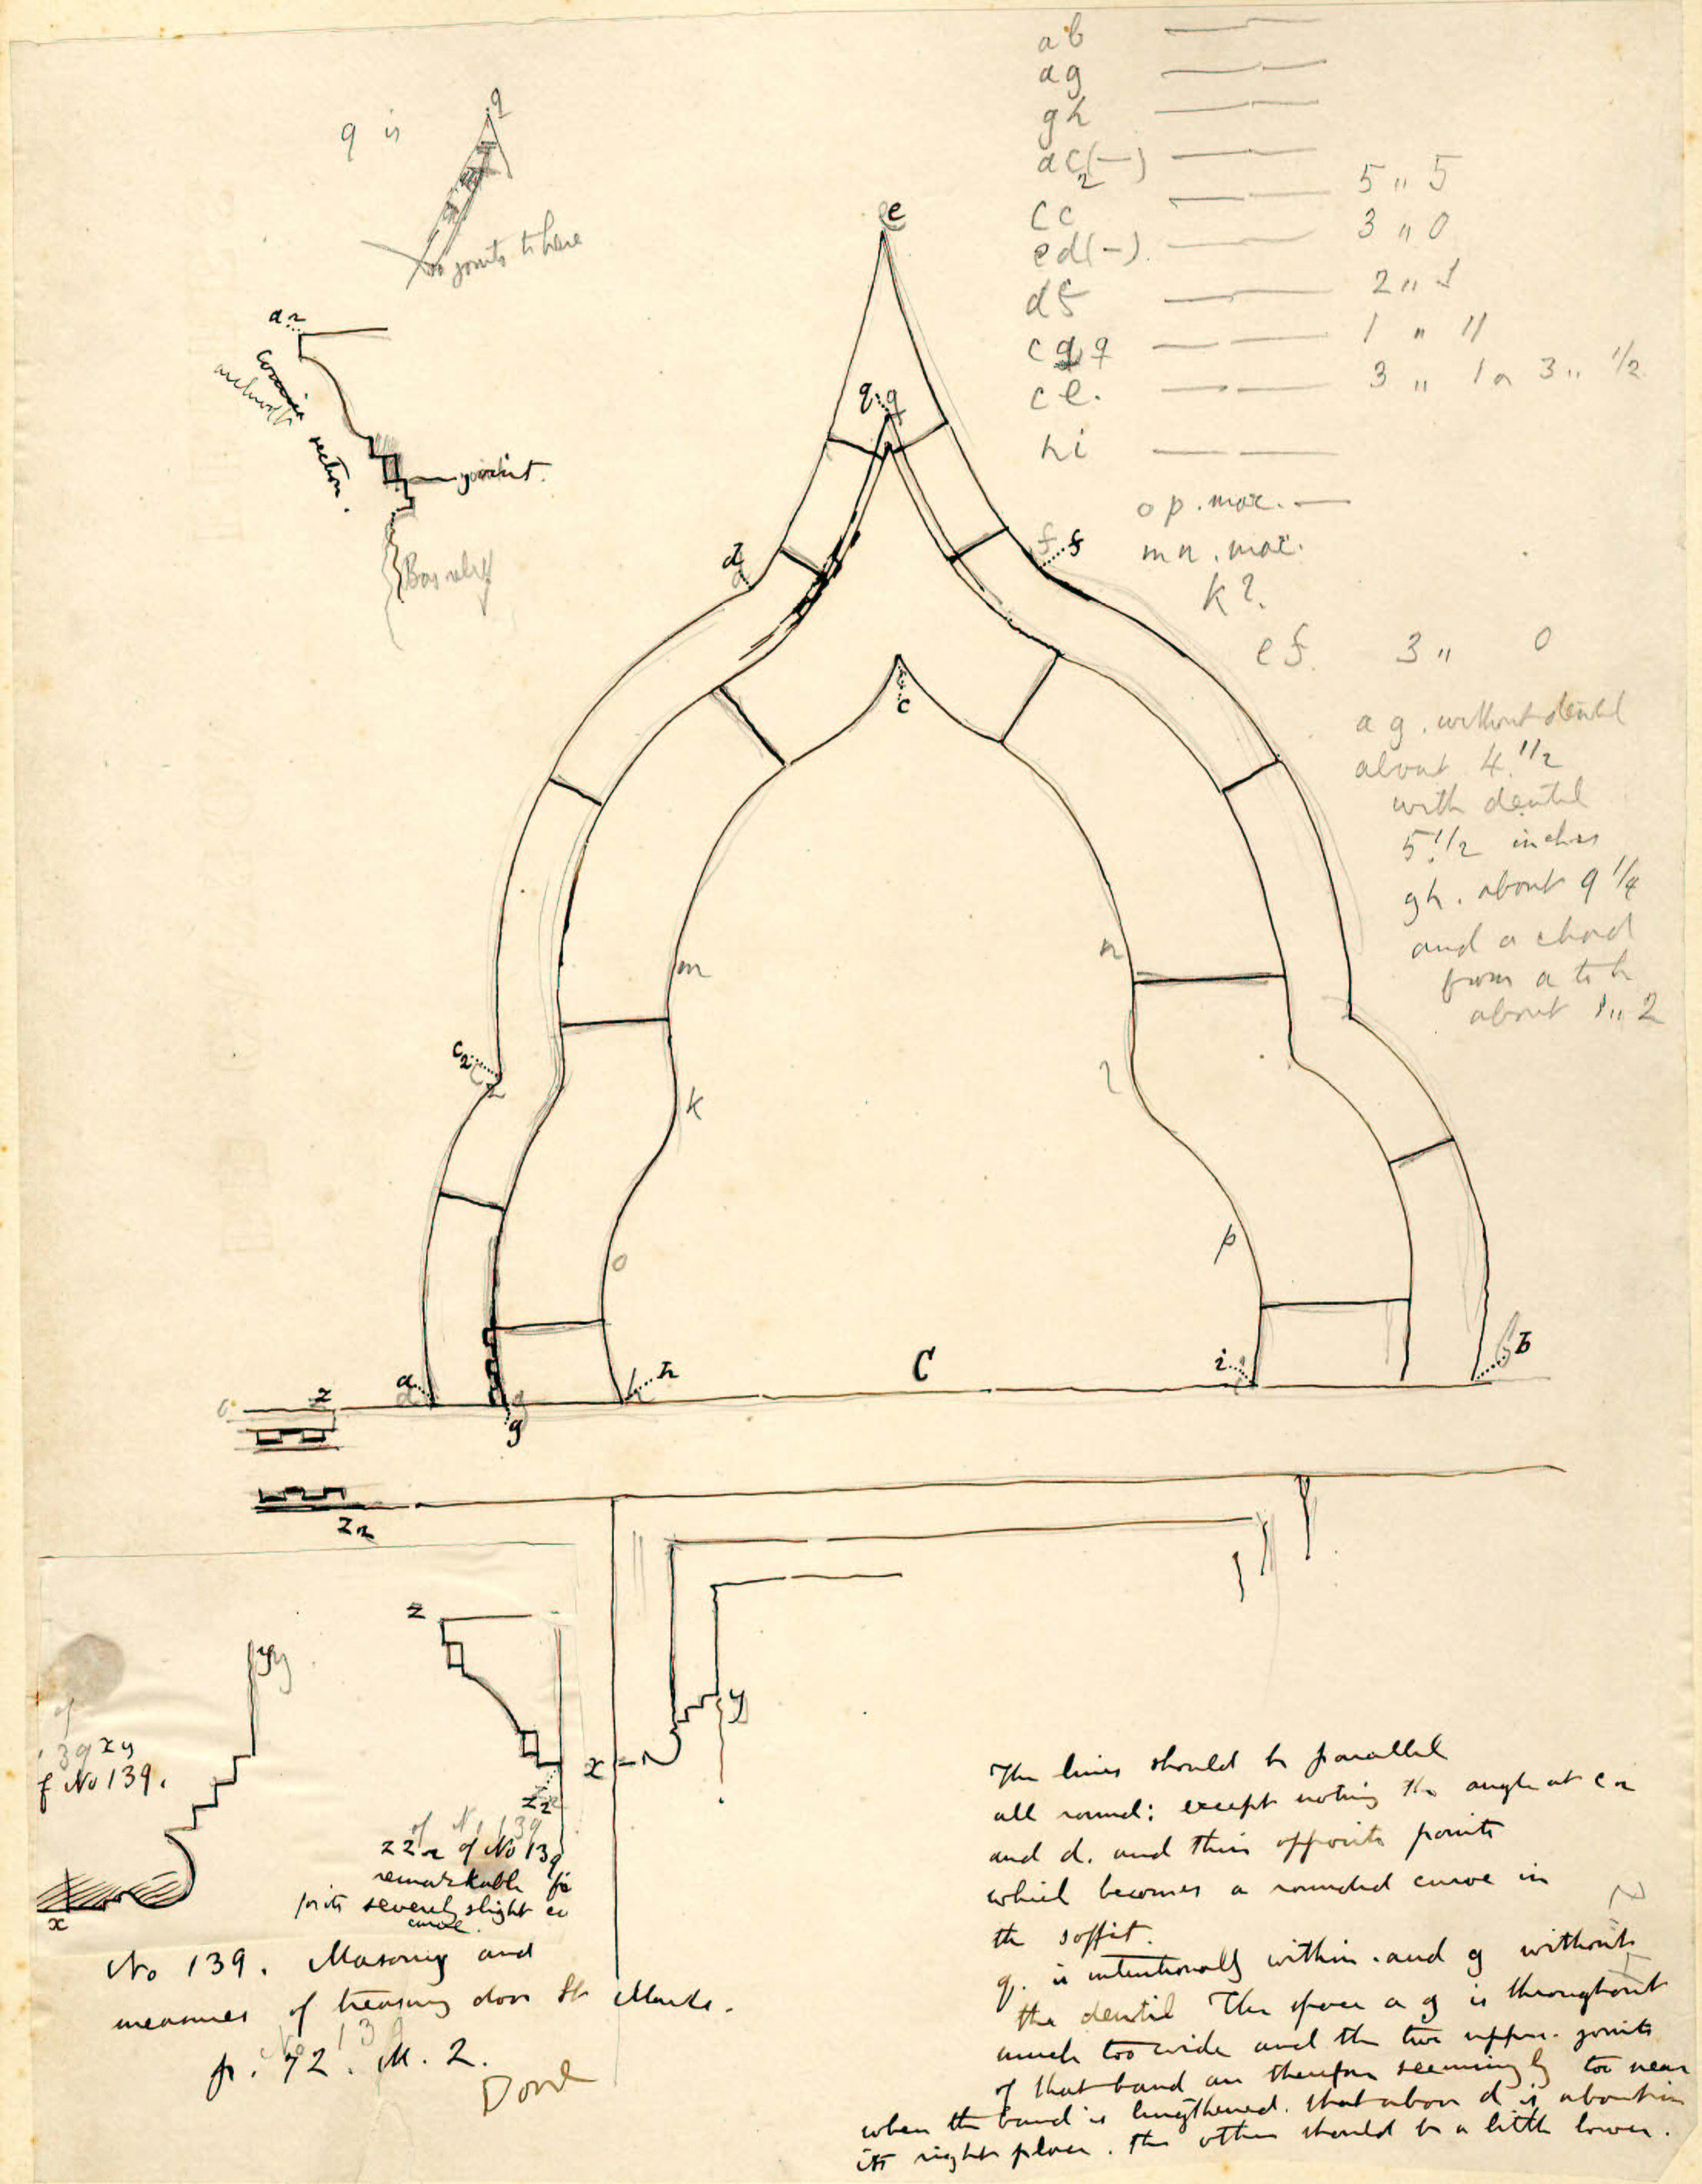 ab
ag
gh
ac(—)
2
cc 5 " 5
ed(—). 3 " 0
df 2 "
cq q 1 " 11
ce. 3 " 1 or 3 " 1/2
hi
op. max.
mn. max.
k?
ef. 3 " 0
q is
q
no joints to here
a
section.
joint.
Bas relief
e
q q
d
f f
c
a g. without dentil
about 4 1/2
with dentil
5 1/2 inches
gh. about 9 1/4
and a chord
from a to h
about 1 " 2
m
n
c2
k
l
o
p
a
g
h
C
i
b
z
z2
z
yy
x
y
x
z2
139 xy
of No 139.
of No 139
z z2 of No 139
remarkable for
its severely slight
curve
No 139. Masonry and
measures of treasury door St Marks.
p. 72. M. 2.
Done
The lines should be parallel
all round: except noting the angle at c2
and d. and their opposite points
which becomes a rounded curve in
the soffit.
q. is intentionally within. and g without
the dentil The space a g is throughout
much too wide and the two upper joints
of that band are therefore seemingly too near
when the band is lengthened. that above d is about in
its right place. the other should be a little lower.